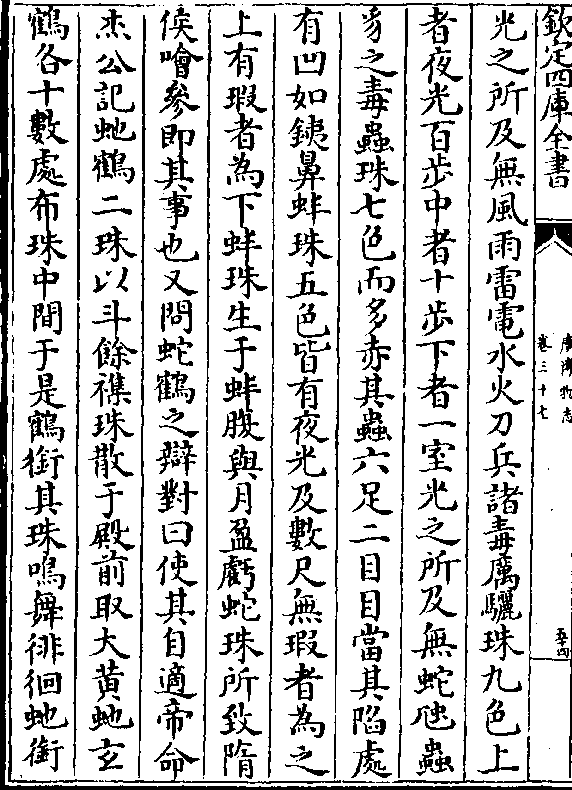 欽定四庫全書
廣博物志
卷三十七
五十四
光之所及無風雨雷電水火刀兵諸毒厲驪珠九色上
者夜光百步中者十步下者一室光之所及無蛇虺蟲
豸之毒蟲珠七色而多赤其蟲六足二目目當其陷處
有凹如鐵鼻蚌珠五色皆有夜光及數尺無瑕者為之
上有瑕者為下蚌珠生于蚌腹與月盈虧蛇珠所致隋
侯噲參即其事也又問蛇鶴之辯對曰使其自適帝命
杰公記虵鶴二珠以斗餘襍珠散于殿前取大黄虵玄
鶴各十數處布珠中間于是鶴銜其珠鳴舞徘徊虵銜